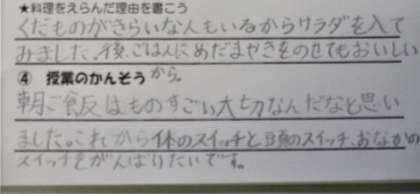 ★料理をえらんだ理由を書こう
くだものがきらいな人もいるからサラダを入て
みました。後、ごはんにめだまやきをのせてもおいしい
から。
④ 授業のかんそう
朝ご飯はものすごい大切なんだなと思い
ました。これから体のスイッチと頭のスイッチ、おなかの
スイッチをがんばりたいです。